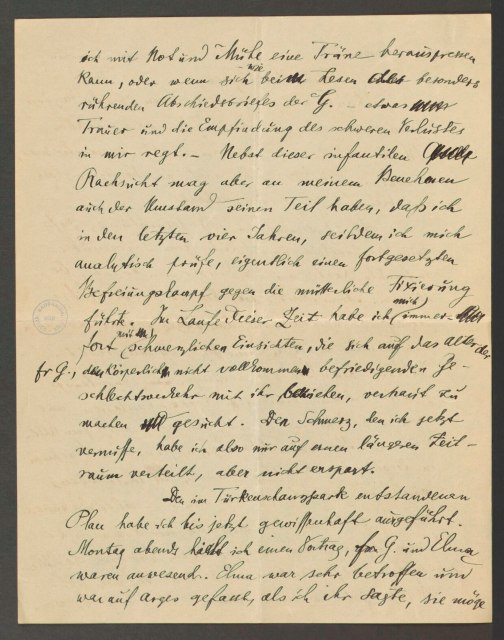 ich mit Not und Mühe eine Träne herauspressen
kann, oder wenn sich wie beim Lesen des besonders
rührenden Abschiedsbriefes der G. – etwas
Trauer und die Empfindung des schweren Verlustes
in mir regt. – Nebst dieser infantilen
Rachsucht mag aber an meinem Benehmen
auch der Umstand seinen Teil haben, daß ich
in den letzten vier Jahren, seitdem ich mich
analytisch prüfe, eigentlich einen fortgesetzten
Befreiungskampf gegen die mütterliche Fixierung
führte. Im Laufe dieser Zeit habe ich mich immer-
fort mit schmerzlichen Einsichten, die sich auf das Alter der
fr G., den körperlich nicht vollkommen befriedigenden Ge-
schlechtsverkehr mit ihr beziehen, vertraut zu
machen gesucht. Den Schmerz, den ich jetzt
vermisse, habe ich also nur auf einen längeren Zeit-
raum verteilt, aber nicht erspart.
Den im Türkenschanzparke entstandenen
Plan habe ich bis jetzt gewissenhaft ausgeführt.
Montag abends hielt ich einen Vortrag, fr G. und Elma
waren anwesend. Elma war sehr betroffen und
war auf arges gefasst, als ich ihr sagte, sie möge